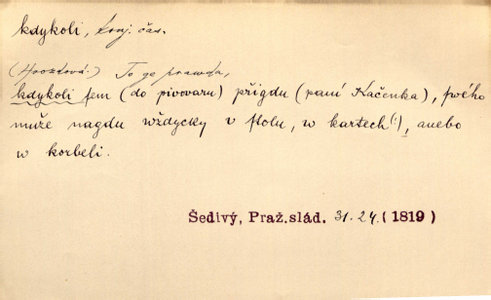 kdykoli, konj. čas.
(Hvozdová:) To ge prawda,
kdykoli sem (do pivovaru) přigdu (paní Kačenka), swého
muže nagdu wždycky v stolu, w kartech(:), anebo
w korbeli.
Šedivý, Praž.slád. 31.24.(1819)